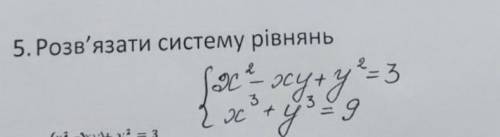 5. Розв'язати систему рівнянь
x² - xy + y² = 3
x³ + y³ = 9